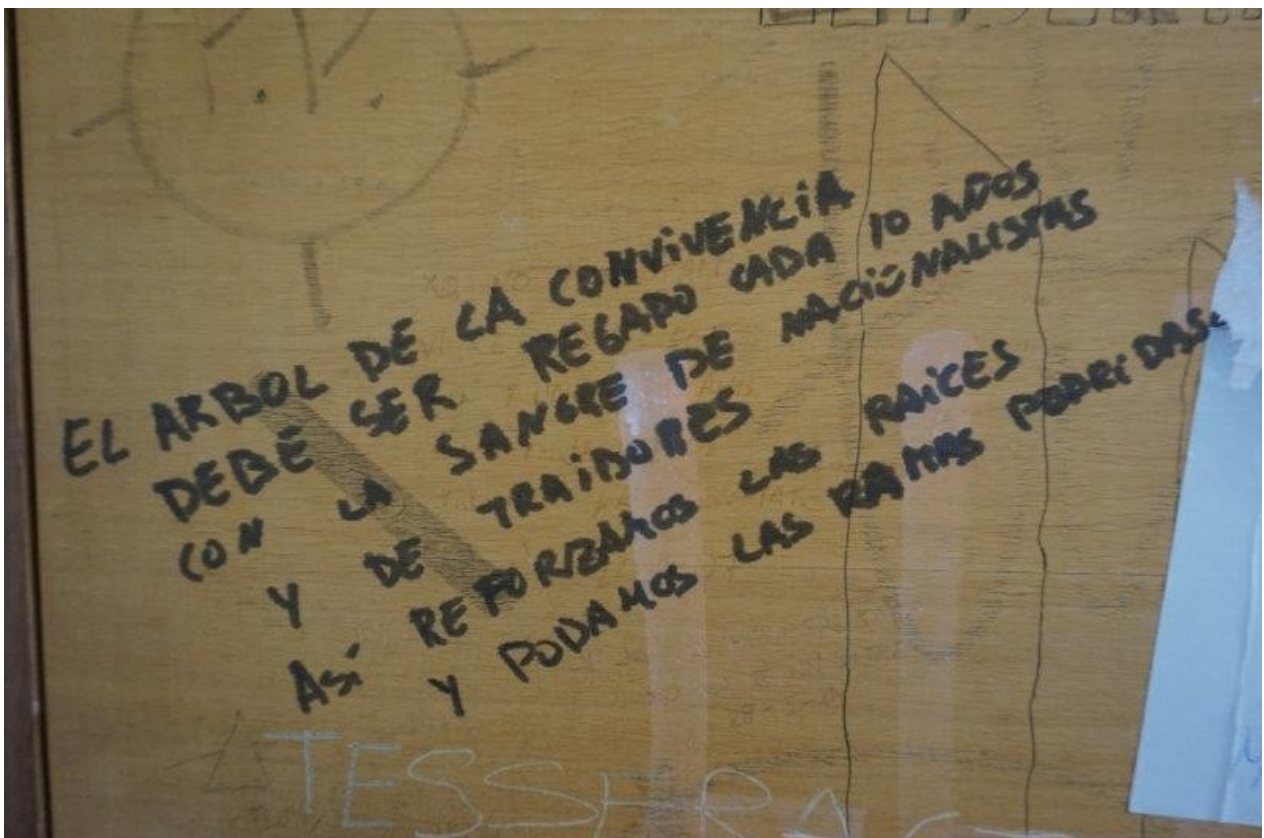 EL ARBOL DE LA CONVIVENCIA
DEBE SER REGADO CADA 10 AÑOS
CON LA SANGRE DE NACIONALISTAS
Y DE TRAIDORES
ASí REFORZAMOS LAS RAICES
Y PODAMOS LAS RAMAS PODRIDAS.
TESSERACT